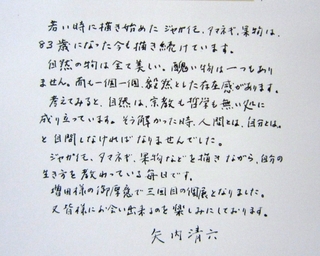 若い時に描き始めたジャガイモ、タマネギ、果物は、
83歳になった今も描き続けています。
自然の物は全て美しい。醜い物は一つもあり
ません。而も一個一個、毅然とした存在感があります。
考えてみると、自然は、宗教も哲学も無い処に
成り立っています。そう解かった時、人間とは、自分とは。
と自問しなければなりませんでした。
ジャガイモ、タマネギ、果物などを描きながら、自分の
生き方を教わっている毎日です。
増田様の御厚意で三回目の個展となりました。
又皆様にお会い出来るのを楽しみにしております。
矢内清六